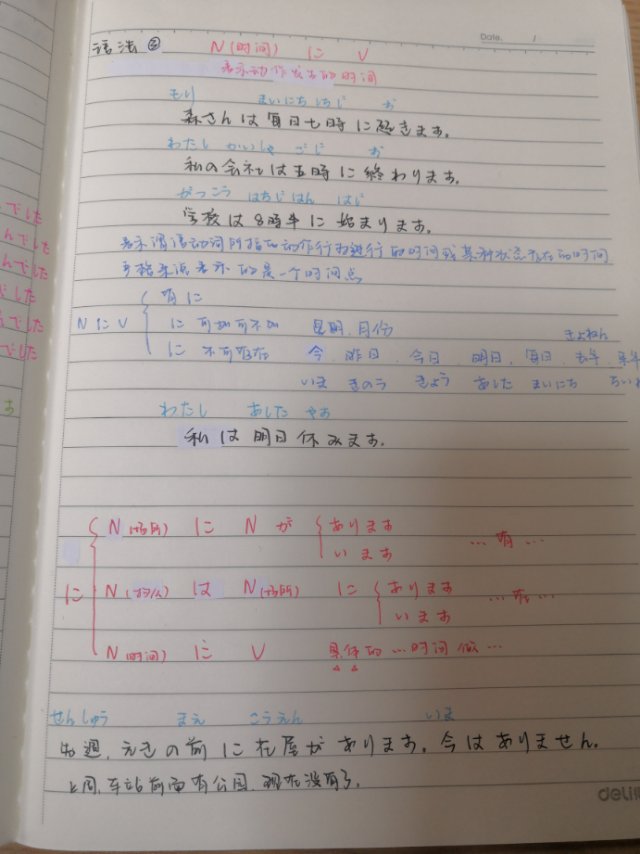 Date. /
语法② N(时间) に V
表示动作发生的时间
もり まいにち しちじ お
森さんは毎日七時に起きます。
わたし かいしゃ ごじ お
私の会社は五時に終わります。
がっこう はちじはん はじ
学校は8時半に始まります。
表示谓语动词所指的动作行为进行的时间或某种状态存在的时间
多指
表示的是一个时间点
NにV
有に
に可加可不加 星期.月份
きょねん
に不可能有 今, 昨日, 今日, 明日, 毎日, 去年,
いま きのう きょう あした まいにち
わたし あした やす
私は明日休みます。
に
N(场所) に N が あります
います
…有…
N は N(场所) に あります
います
…在…
N(时间) に V 具体的…时间做…
せんしゅう まえ こうえん いま
先週,えきの前に がありあす。今はありません。
上周,车站前面有公园,现在没有了。
んでした
んでした
んでした
でした
でした
でした
deli